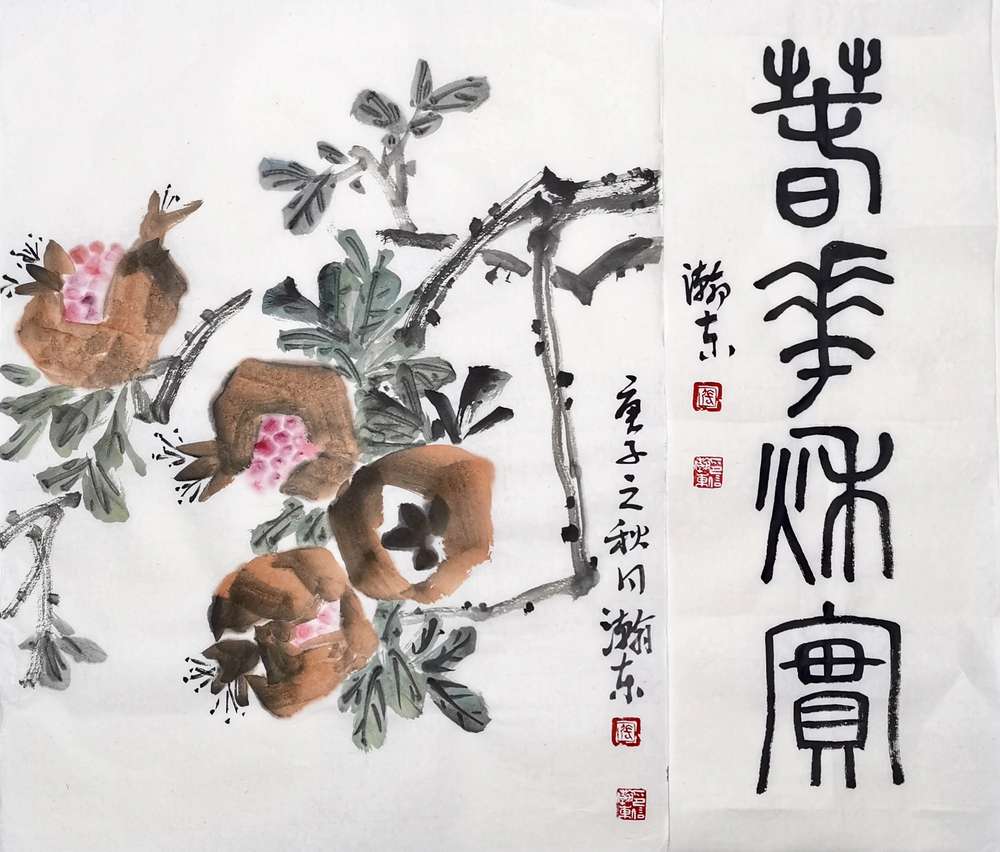 春華秋實
瀚东
庚子之秋月瀚东